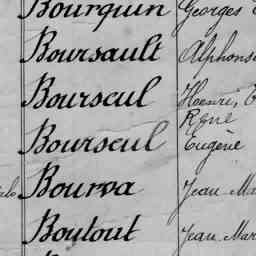 Bourquin Georges
Boursault Alphons
Bourseul Henri, E
René
Bourseul Eugène
Bourva Jean Ma
Boutout Jean Mar